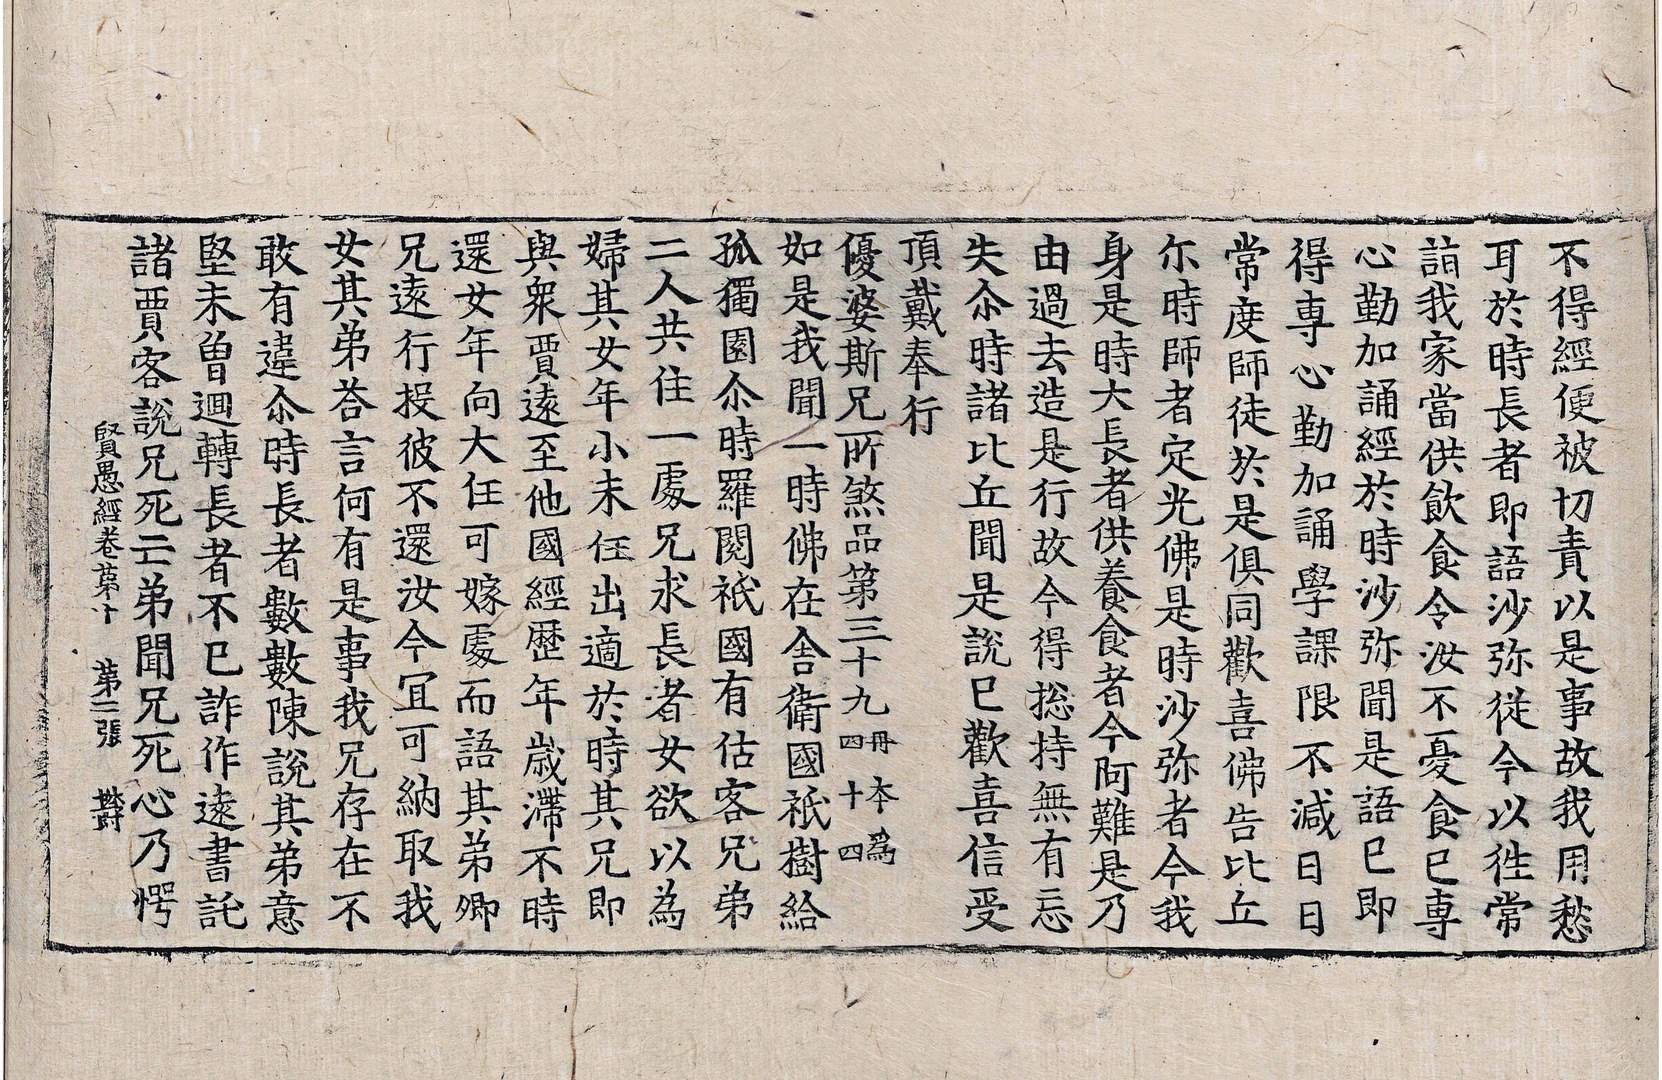 不得經便被切責以是事故我用愁
耳於時長者即語沙弥從今以徃常
詣我家當供飲食令汝不憂食巳專
心勤加誦經於時沙弥聞是語巳即
得專心勤加誦學課限不減日日
常度師徒於是俱同歡喜佛告比丘
尒時師者定光佛是時沙弥者今我
身是時大長者供養食者今阿難是乃
由過去造是行故今得捴持無有忘
失尒時諸比丘聞是說巳歡喜信受
頂戴奉行
優婆斯兄所煞品第三十九 冊本為四十四
如是我聞一時佛在舍衛國祇樹給
孤獨園尒時羅閱祇國有估客兄弟
二人共住一處兄求長者女欲以為
婦其女年小未任出適於時其兄即
與衆賈遠至他國經歷年歲滯不時
還女年向大任可嫁處而語其弟卿
兄遠行投彼不還汝今冝可納取我
女其弟荅言何有是事我兄存在不
敢有違尒時長者數數陳說其弟意
堅未曾迴轉長者不巳詐作遠書託
諸賈客說兄死亡弟聞兄死心乃愕
賢愚經卷第十 第二張 欝